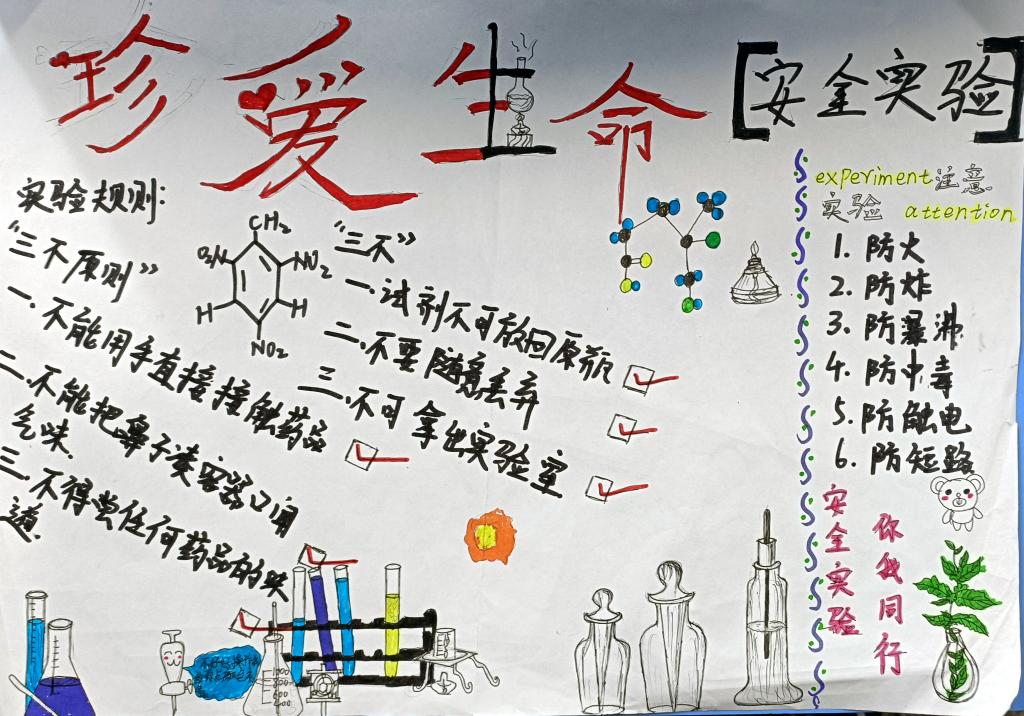 珍爱生命
[安全实验]
实验规则:
“三不原则”
一.不能用手直接接触药品
二.不能把鼻子凑容器口闻
气味.
三.不得尝任何药品的味
道.
CH₂
O₂N
NO₂
H
H
NO₂
“三不”
一.试剂不可放回原瓶
二.不要随意丢弃
三.不可拿出实验室
experiment 注意
实验 attention
1. 防火
2. 防炸
3. 防暴沸
4. 防中毒
5. 防触电
6. 防短路
安全实验
你我同行